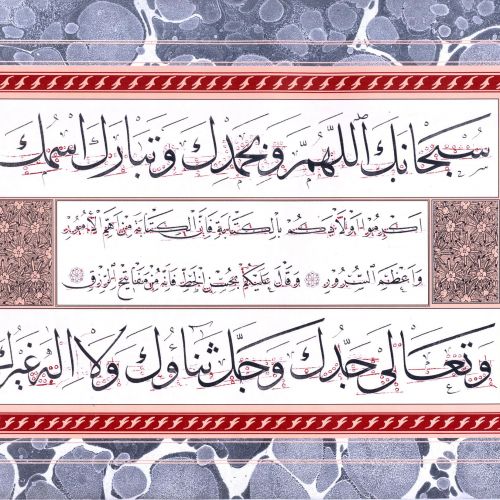 سبحانك اللهم وبحمدك وتبارك اسمك
اكرموا اولادكم بالكتابة فان الكتابة من اهم الامور
واعظم السرور وقال عليكم بحسن الخط فانه من مفاتيح الرزق
وتعالى جدك وجل ثناؤك ولا اله غيرك